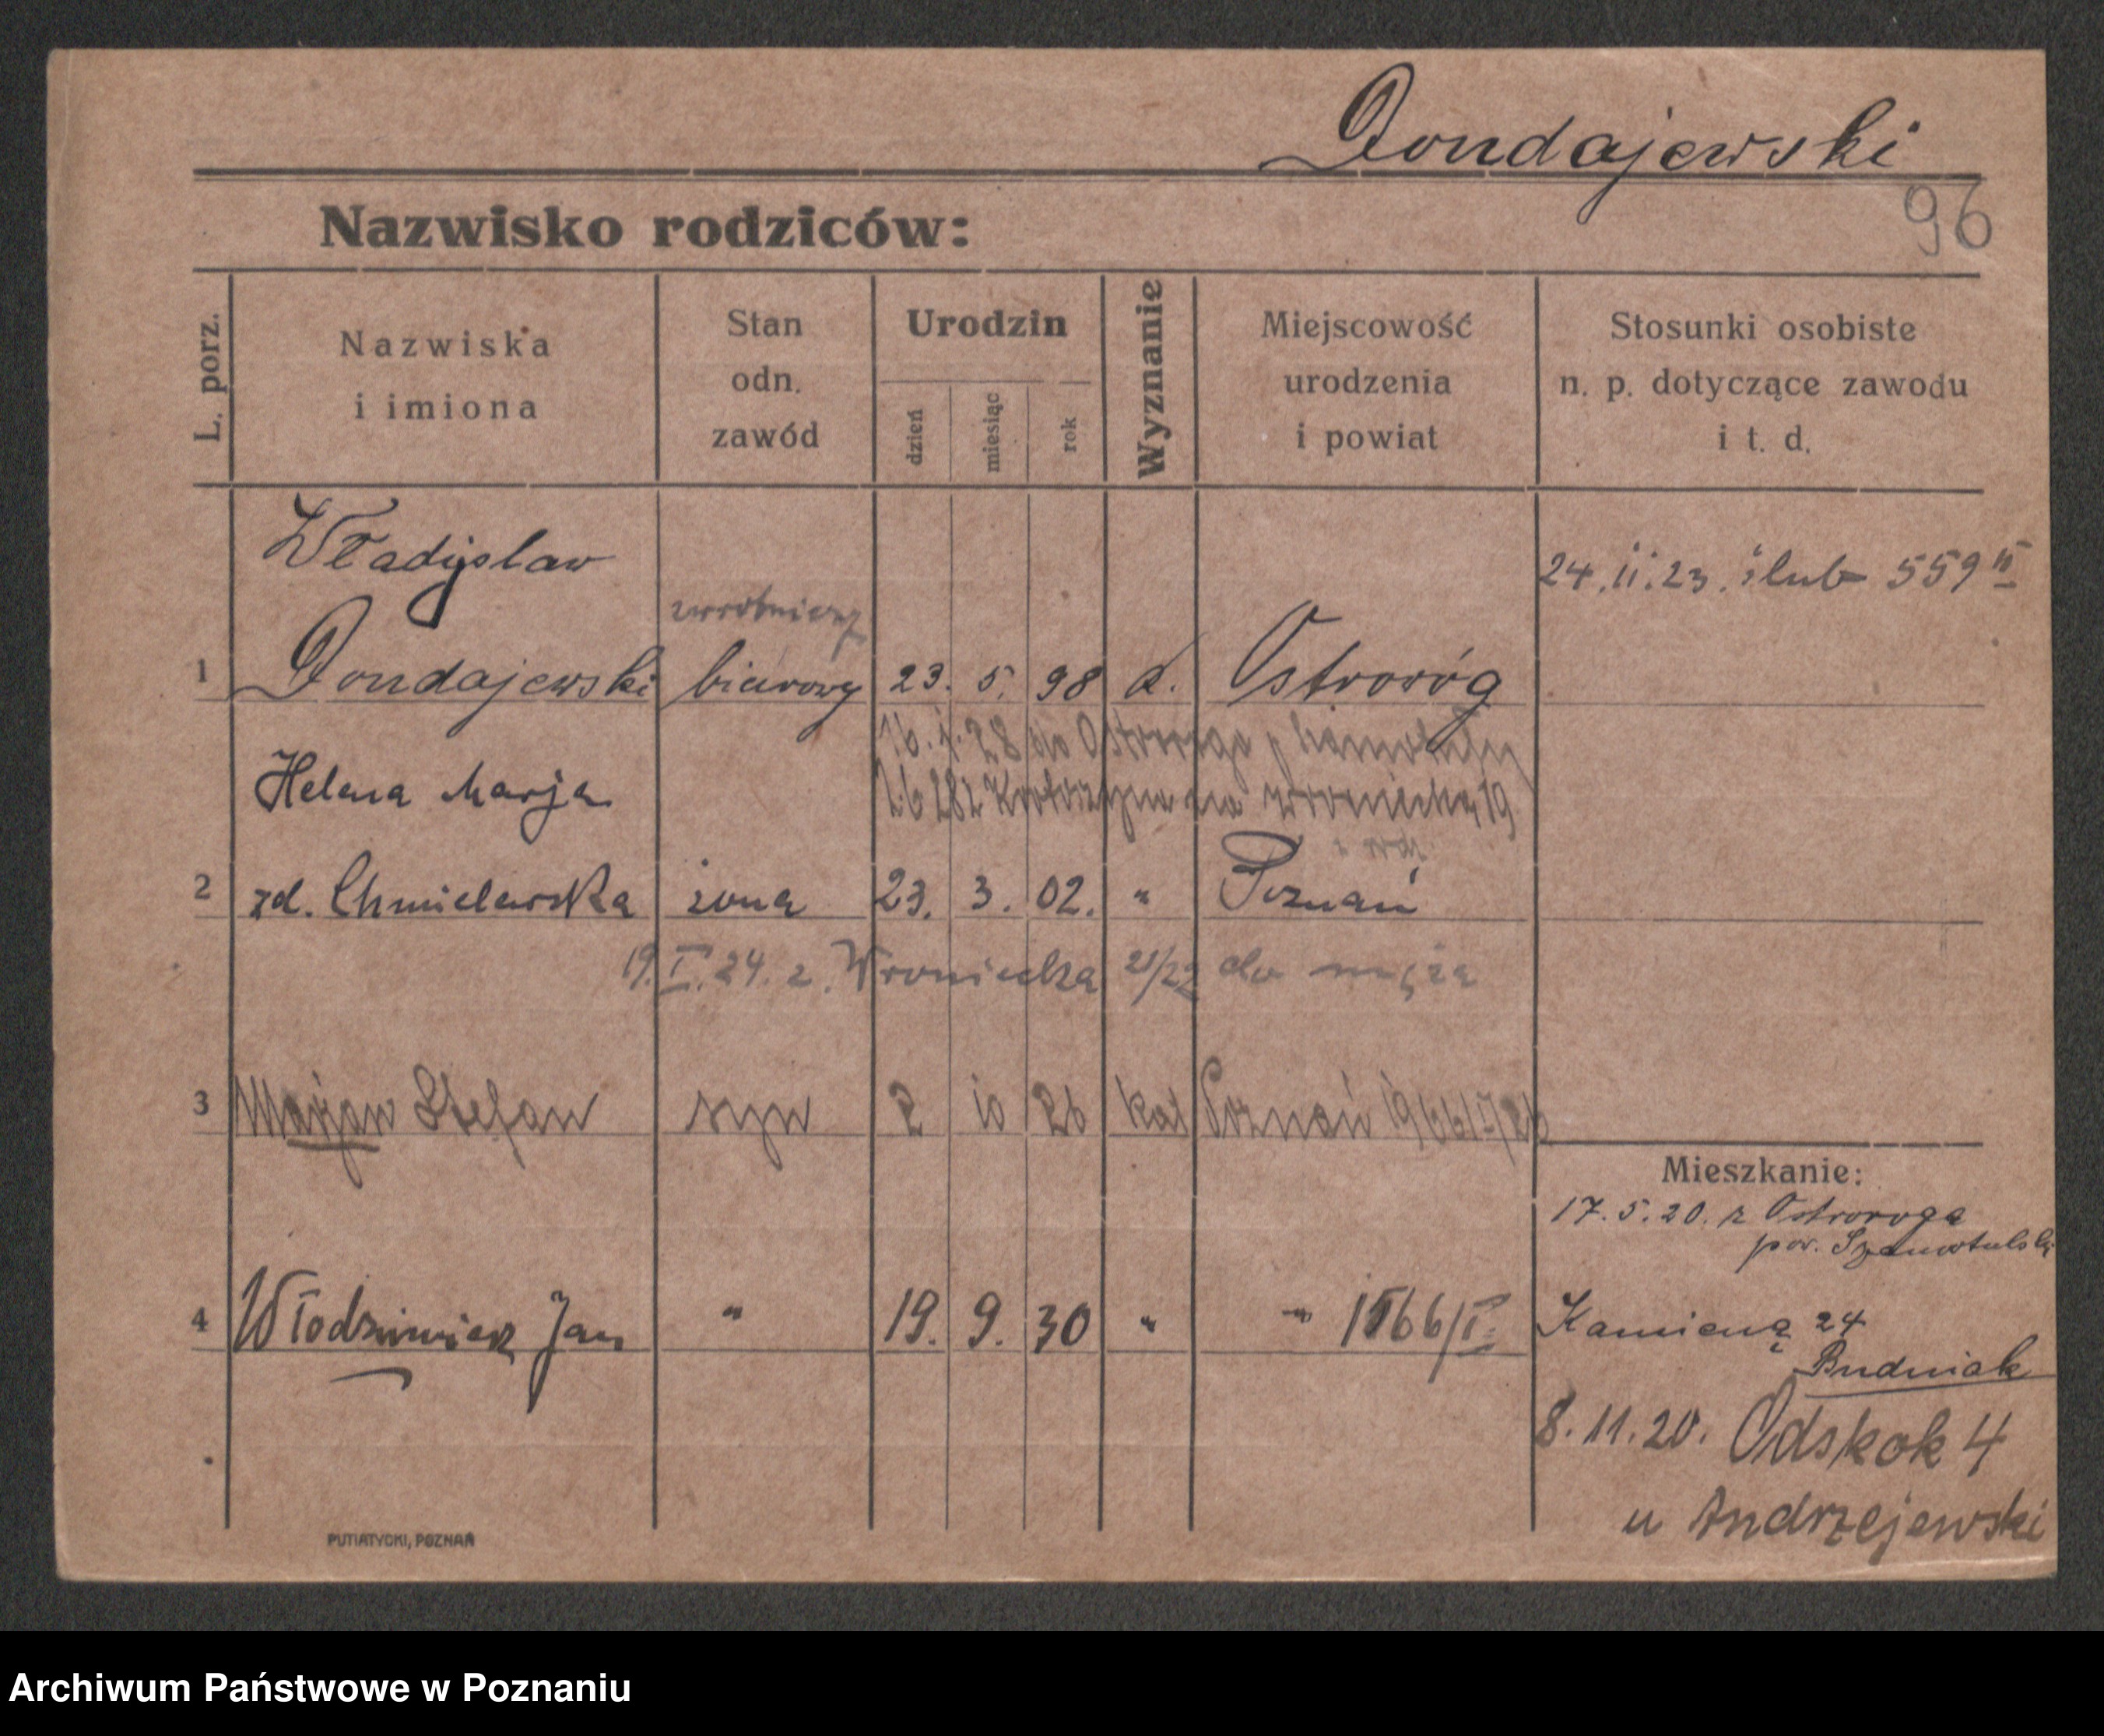 Dondajewski
96
Nazwisko rodziców:
L. porz.
Nazwiska i imiona
Stan odn. zawód
Urodzin
dzień
miesiąc
rok
Wyznanie
Miejscowość urodzenia i powiat
Stosunki osobiste n. p. dotyczące zawodu i t. d.
Władysław
24.11.23. ślub 559 II
zwrotniczy
1 Dondajewski biurowy 23. 5. 98 k. Ostroróg
do Ostroroga p. Szamotuły
Helena Marja
z Krotoszyna na Wroniecką 19
2 zd. Chmielewska żona 23. 3. 02. " Poznań
19.I.24. z. Wroniecka 21/22 do męża
3 Marjan Stefan syn 2 10 26 kat Poznań
Mieszkanie:
17.5.20. z Ostroroga
pow. Szamotulski
4 Włodzimierz Jan " 19. 9. 30 " "
Kamienną 24
Budniak
8.11.20. Odskok 4
u Andrzejewski
PUTIATYCKI, POZNAŃ
Archiwum Państwowe w Poznaniu